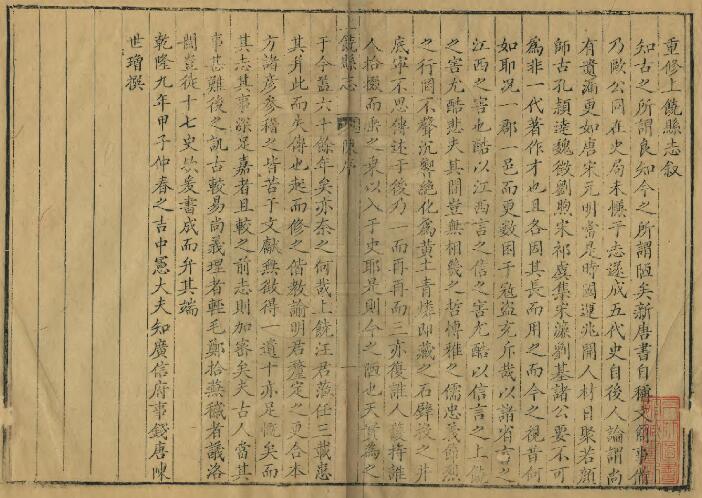 重修上饒縣志叙
知古之所謂良知今之所謂陋矣新唐書自稱文簡事備
乃歐公同在史局未慊于志遂成五代史自後人論謂尚
有遺漏更如唐宋元明當是時國運兆開人材日聚若顏
師古孔穎達魏徵劉煦宋祁虞集宋濂劉基諸公要不可
為非一代著作才也且各因其長而用之而今之視昔何
如耶况一郡一邑而更数困于寇盜兵斥哉以諸省言之
江西之害也酷以江西言之信之害尤酷以信言之上饒
之害尤酷悲夫其間豈無相幾之哲博雅之儒忠義節烈
之行罔不聲沉響絶化為黄土青燐即藏之石壁投之井
底寧不思傳述于後乃一而再再而三亦復誰人募持誰
人拾掇而垂之棗以入于史耶是則今之陋也天實為之
上饒縣志 陳序 一
于今蓋六十餘年矣亦奈之何哉上饒汪君蒞任三載患
其并此而失傳也起而修之偕教諭明君釐定之更合本
方諸彦参稽之皆苦于文獻無徵得一遺十亦足慨矣而
其志其事深足嘉者且較之前志則加審矣夫古人當其
事甚難後之訊古較易尚義理者輕毛鄭拾蕪穢者議洛
閩豈從十七史然爰書成而弁其端
乾隆九年甲子仲春之吉中憲大夫知廣信府事錢唐陳
世增撰